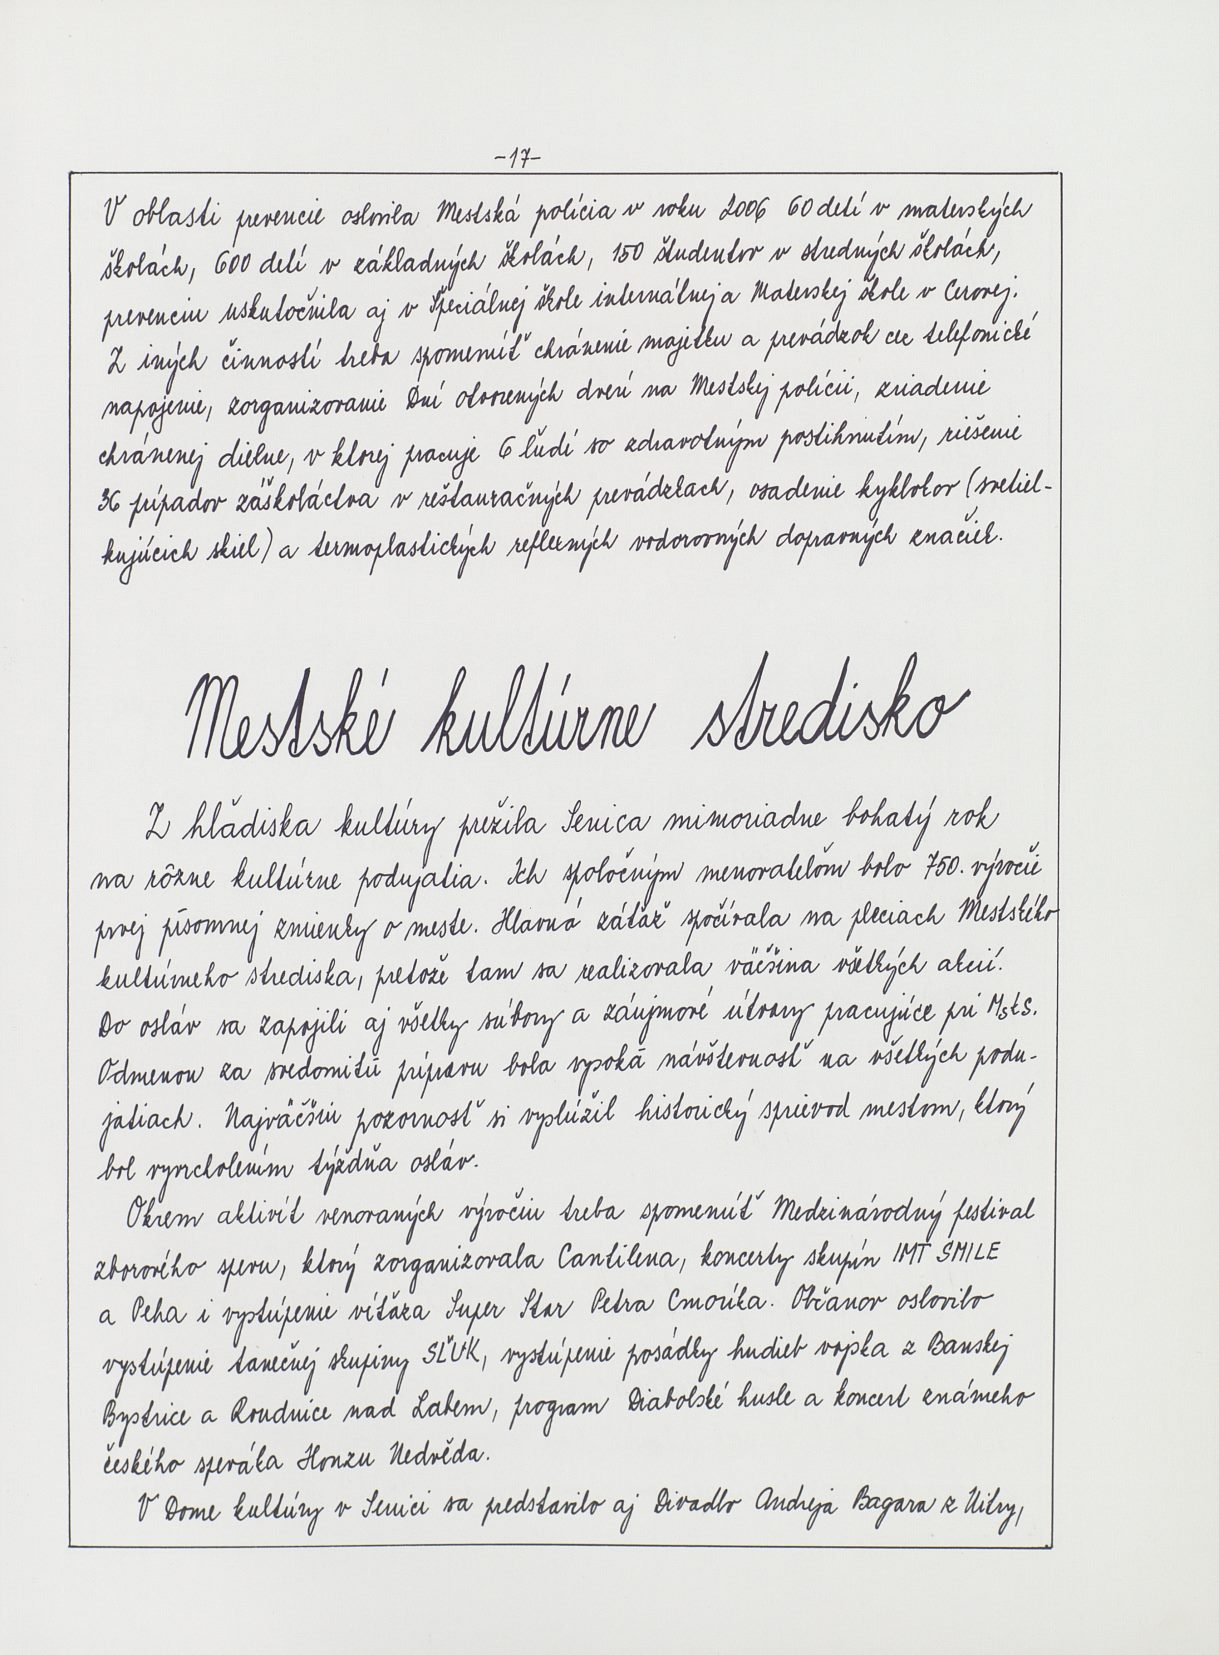 -17-
V oblasti prevencie oslovila Mestská polícia v roku 2006 60 detí v materských
školách, 600 detí v základných školách, 150 študentov v stredných školách,
prevenciu uskutočnila aj v Špeciálnej škole internátnej a Materskej škole v Cerovej.
Z iných činností treba spomenúť chránenie majetku a prevádzok cez telefonické
napojenie, zorganizovanie Dní otvorených dverí na Mestskej polícii, zriadenie
chránenej dielne, v ktorej pracuje 6 ľudí so zdravotným postihnutím, riešenie
36 prípadov záškoláctva v reštauračných prevádzkach, osadenie kyklotov (svetiel-
kujúcich skiel) a termoplastických reflexných vodorovných dopravných značiek.
Mestské kultúrne stredisko
Z hľadiska kultúry prežila Senica mimoriadne bohatý rok
na rôzne kultúrne podujatia. Ich spoločným menovateľom bolo 750. výročie
prvej písomnej zmienky o meste. Hlavná záťaž spočívala na pleciach Mestského
kultúrneho strediska, pretože tam sa realizovala väčšina všetkých akcií.
Do osláv sa zapojili aj všetky súbory a záujmové útvary pracujúce pri MsKS.
Odmenou za svedomitú prípravu bola vysoká návštevnosť na všetkých podu-
jatiach. Najväčšiu pozornosť si vyslúžil historický sprievod mestom, ktorý
bol vyvrcholením týždňa osláv.
Okrem aktivít venovaných výročiu treba spomenúť Medzinárodný festival
zborového spevu, ktorý zorganizovala Cantilena, koncerty skupín IMT SMILE
a Peha i vystúpenie víťaza Super Star Petra Cmoríka. Občanov oslovilo
vystúpenie tanečnej skupiny SĽUK, vystúpenie posádky hudieb vojska z Banskej
Bystrice a Roudnice nad Labem, program Diabolské husle a koncert známeho
českého speváka Honzu Nedvěda.
V Dome kultúry v Senici sa predstavilo aj Divadlo Andreja Bagara z Nitry,